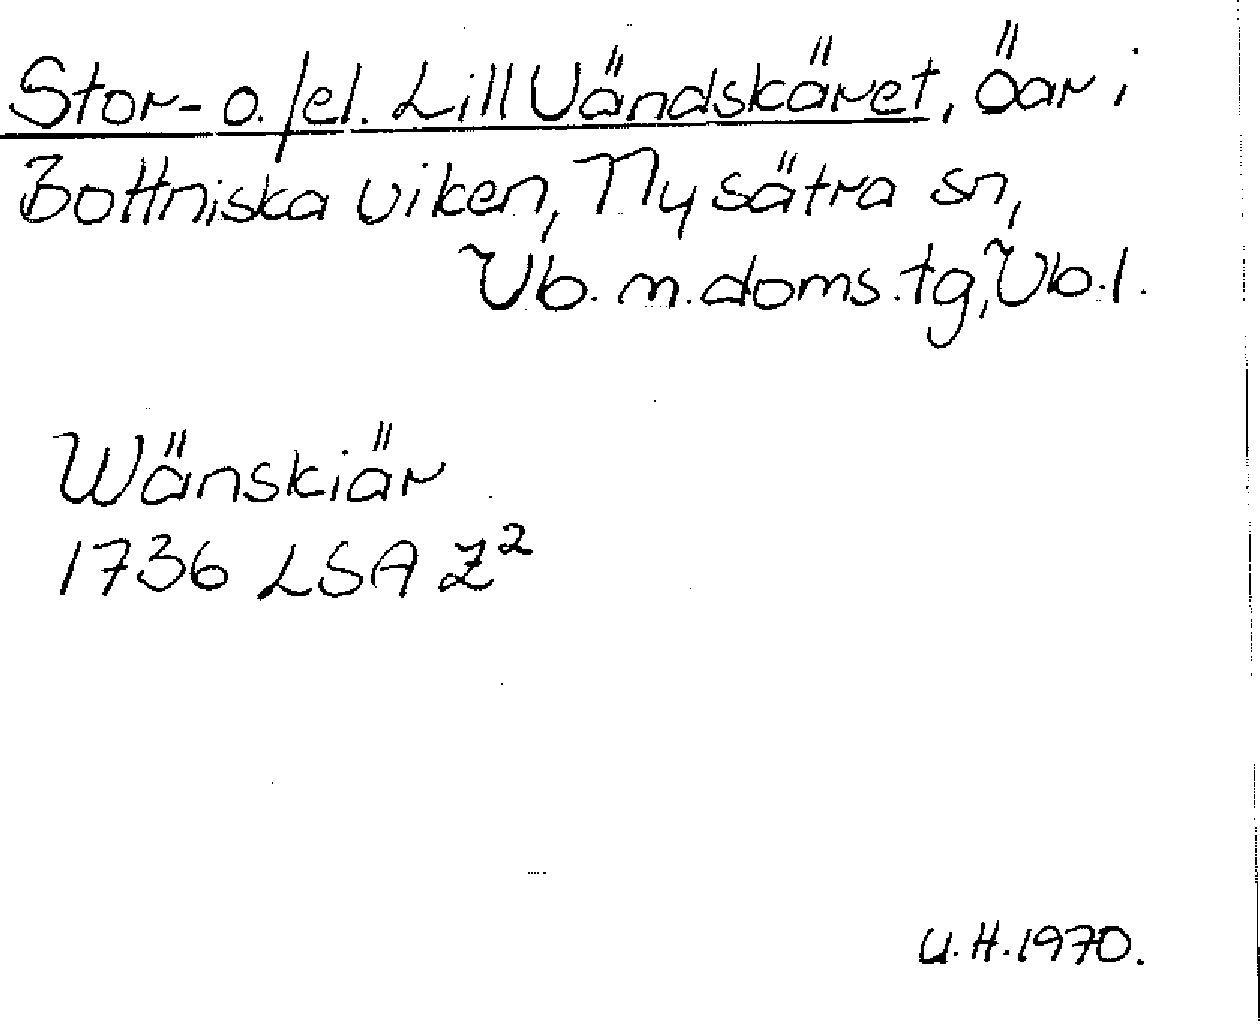 Stor- o./el. Lill Vändskäret, öar i
Bottniska viken, Nysätra sn,
Vb. m. doms. tg, Vb.l.
Wänskiär
1736 LSA Z²
U.H.1970.